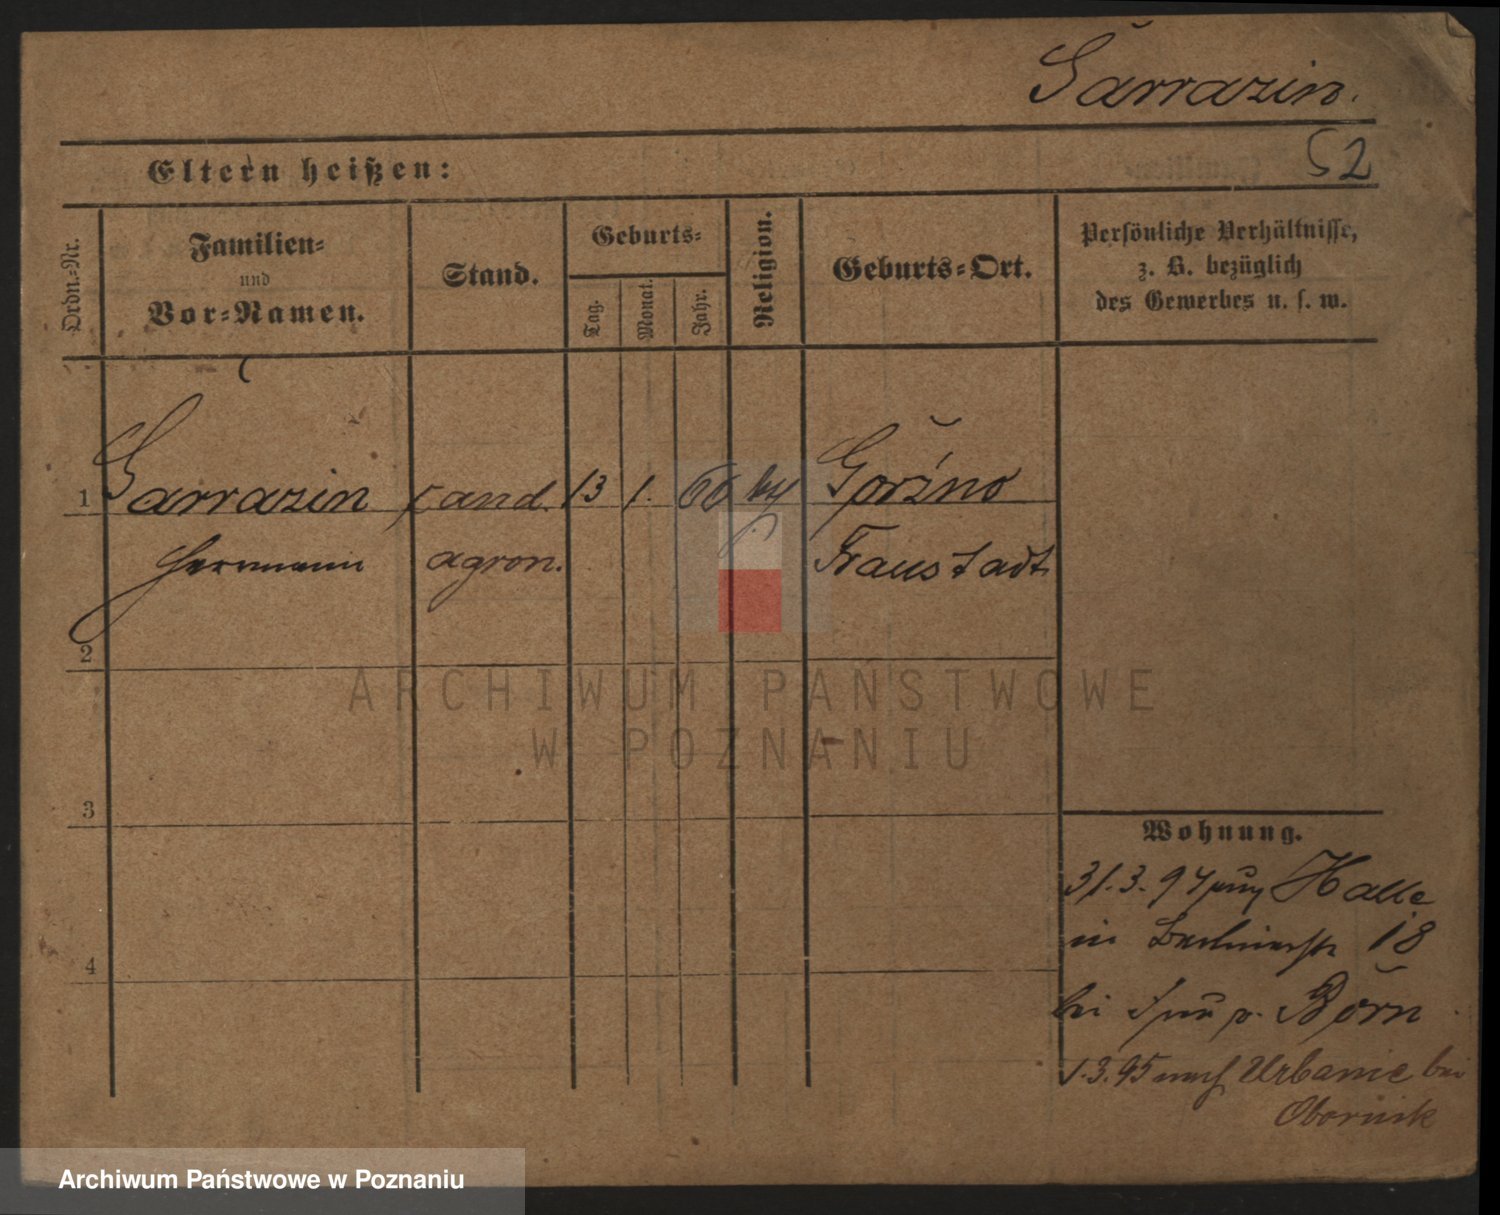 Sarrazin.
52
Eltern heißen:
Ordn.-Nr.
Familien-
und
Vor-Namen.
Stand.
Geburts-
Tag.
Monat.
Jahr.
Religion.
Geburts-Ort.
Persönliche Verhältnisse,
z. B. bezüglich
des Gewerbes u. s. w.
1 Sarrazin cand. 13 1. 66 Goržno
Hermann agron. Fraustadt
2
3
4
Wohnung.
31.3.94 Halle
in Berlinerstr 18
bei Frau v. Born
1.3.95 nach Urbanie bei
Obornik
ARCHIWUM PAŃSTWOWE
W POZNANIU
Archiwum Państwowe w Poznaniu